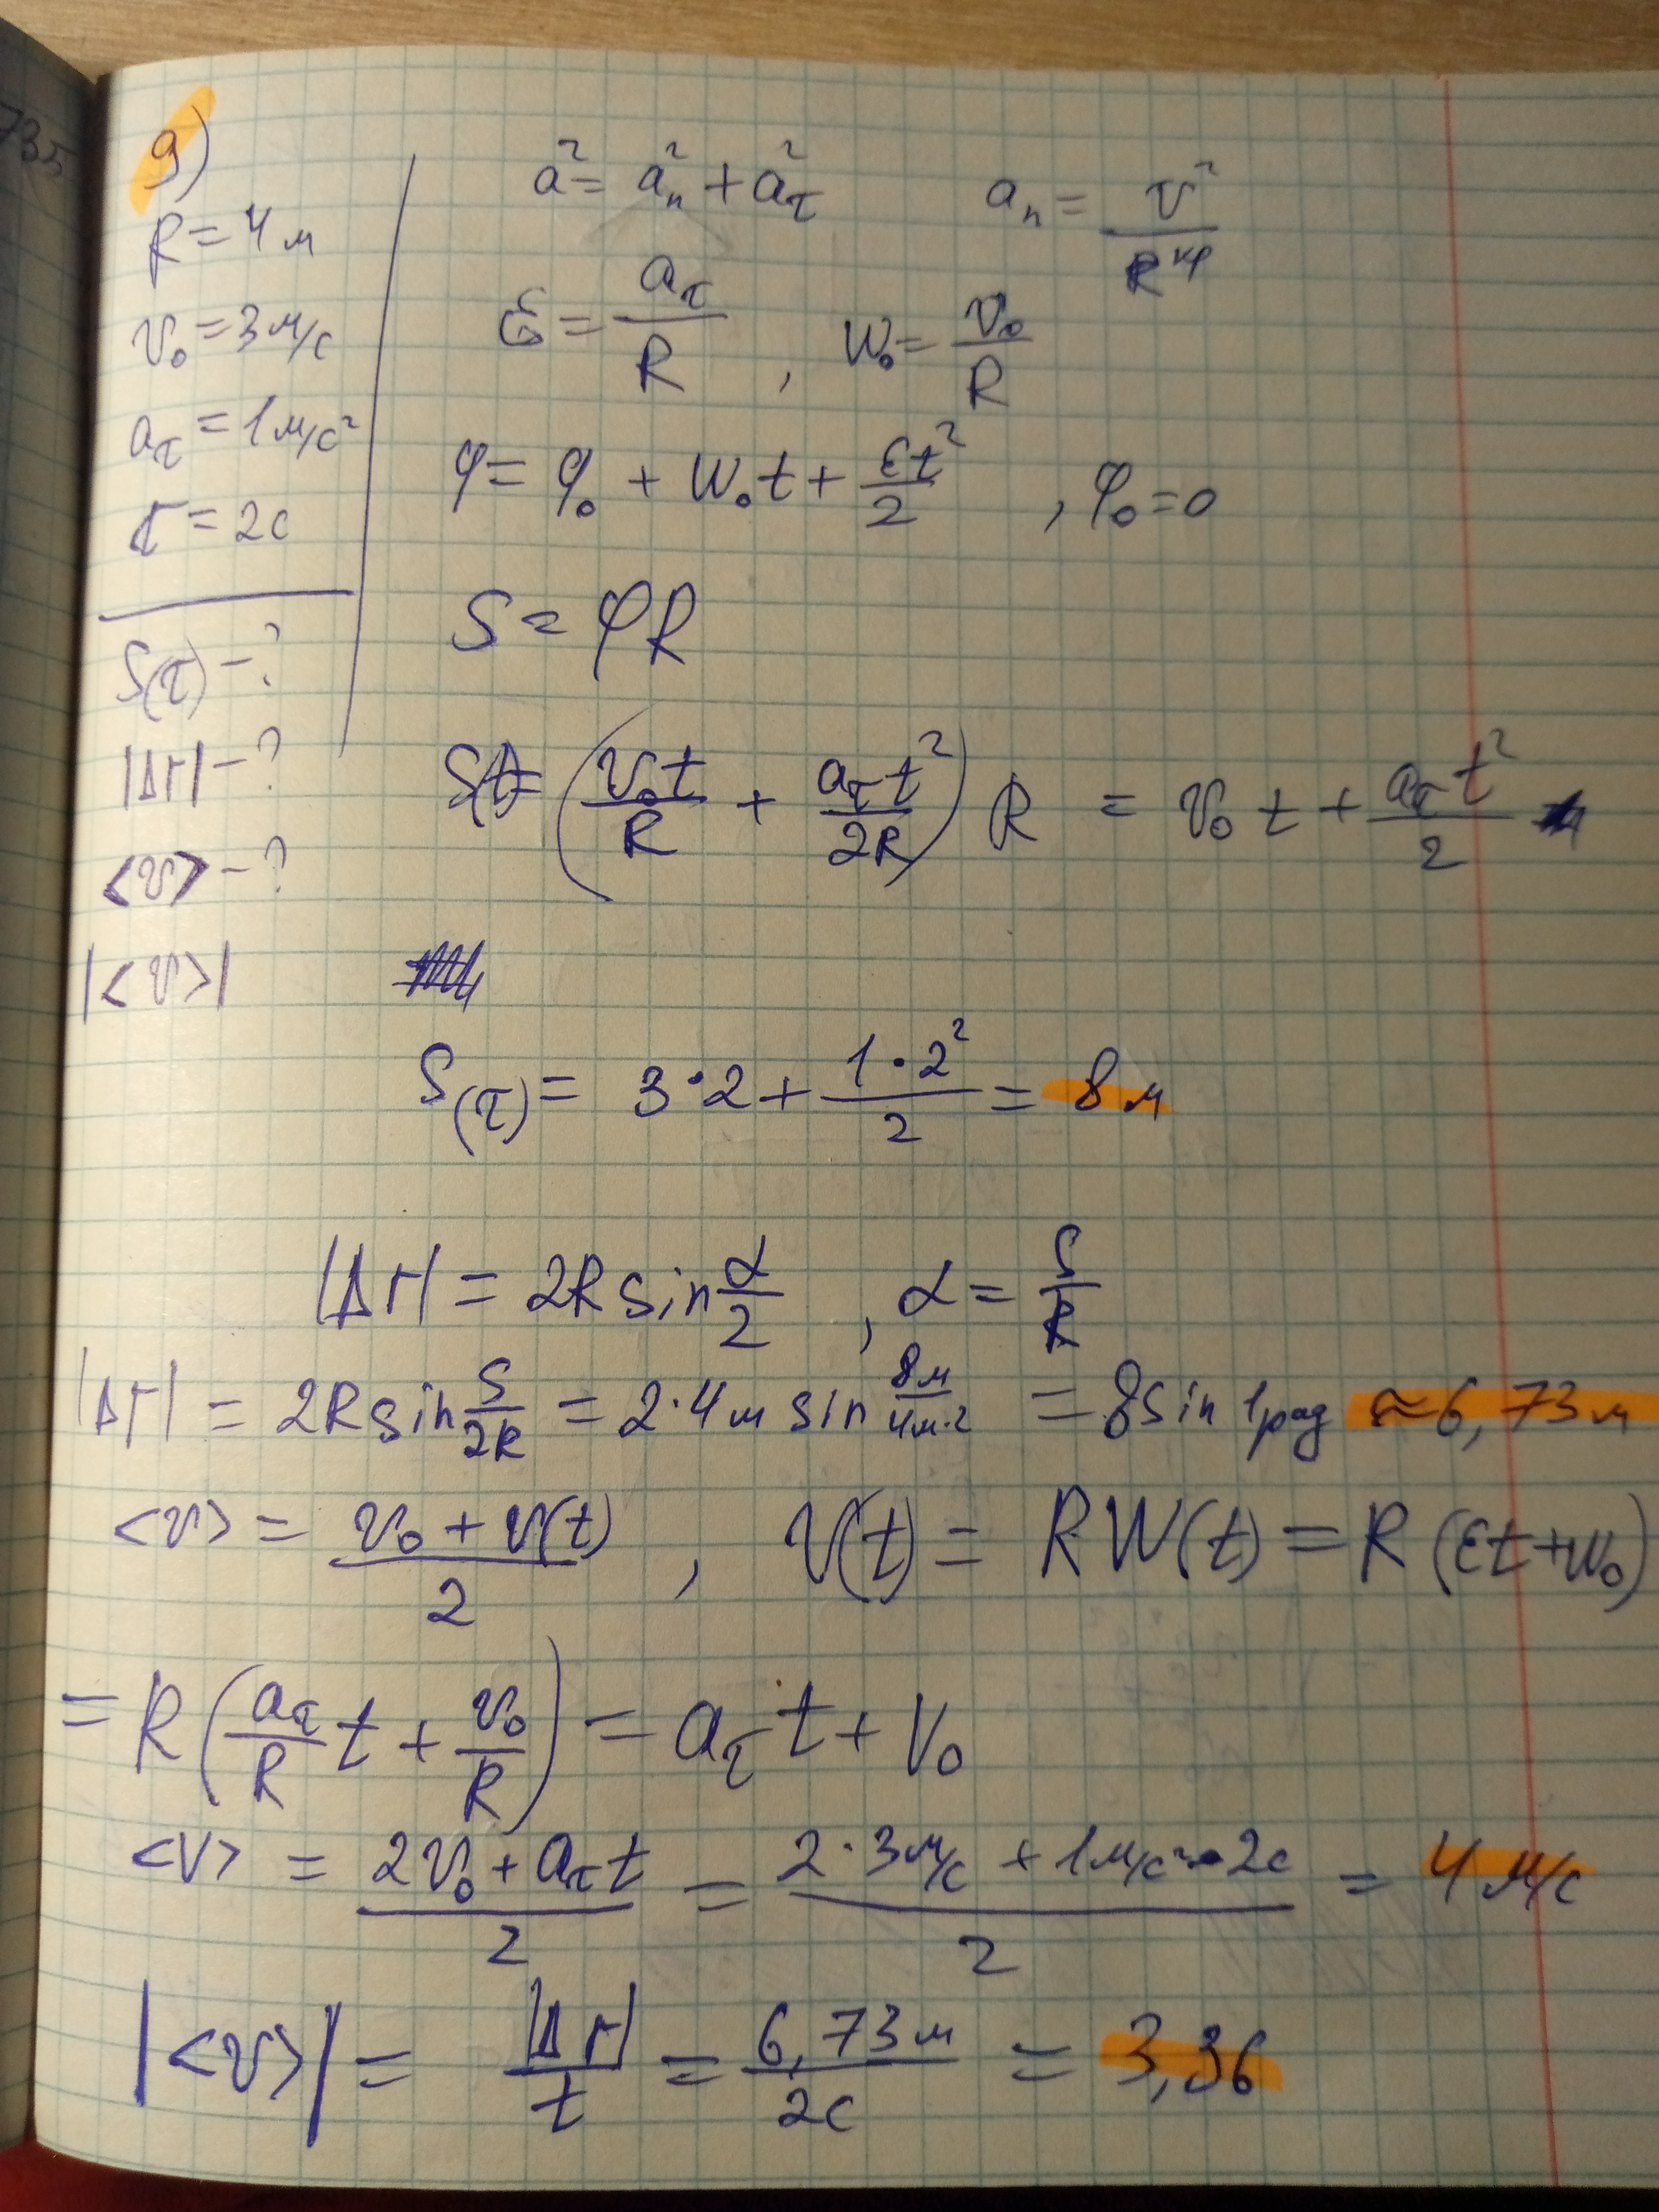 735
9)
R = 4 м
v₀ = 3 м/с
a_τ = 1 м/с²
τ = 2с
S(τ) - ?
|Δr| - ?
<v> - ?
|<v>|
a² = a_n² + a_τ²   a_n = v²/R
ε = a_τ/R , ω₀ = v₀/R
φ = φ₀ + ω₀t + εt²/2 , φ₀ = 0
S = φR
S(t) = (v₀t/R + a_τt²/2R) R = v₀t + a_τt²/2
S(τ) = 3·2 + 1·2²/2 = 8 м
|Δr| = 2R sin α/2 , α = S/R
|Δr| = 2R sin S/2R = 2·4м sin 8м/4м·2 = 8 sin 1рад ≈ 6,73 м
<v> = v₀ + v(t)/2 , v(t) = R W(t) = R (εt + ω₀)
= R (a_τ/R t + v₀/R) = a_τ t + V₀
<V> = 2v₀ + a_τ t/2 = 2·3м/с + 1м/с²·2с/2 = 4 м/с
|<v>| = |Δr|/t = 6,73 м/2с = 3,36